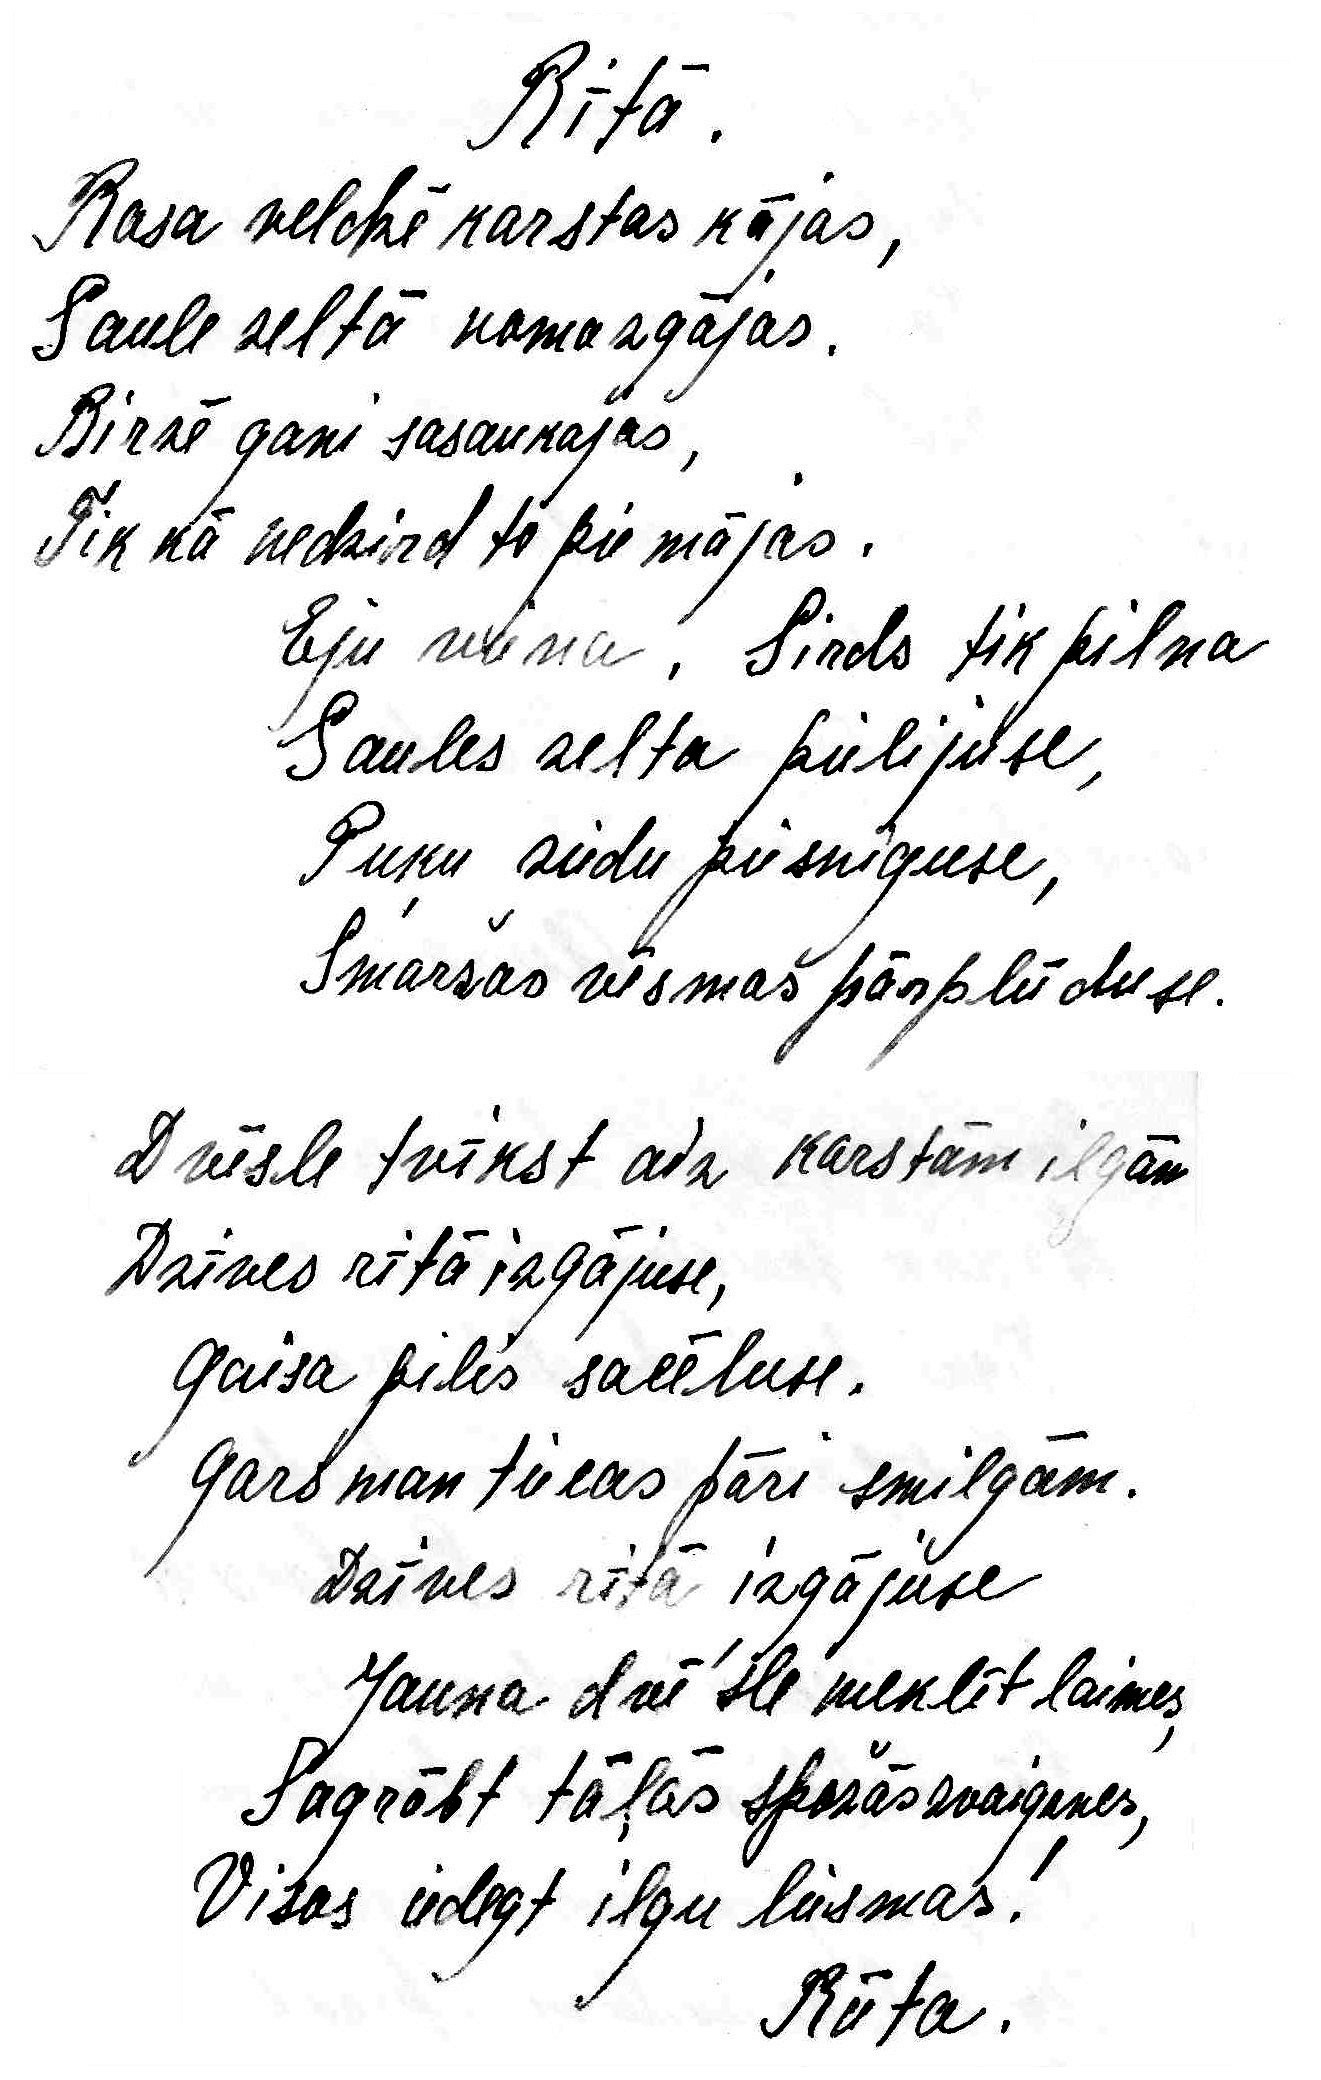 Rītā.
Rasa veldzē karstas kājas,
Saule zeltā nomazgājas.
Birzē gani sasaukajas,
Tik kā nedzird to pie mājas.
Eju viena. Sirds tik pilna
Saules zelta pielijuse,
Puķu ziedu piesniguse,
Smaržas vēsmas pārplūduse.
Dvēsle tvīkst aiz karstām ilgām
Dzīves rītā izgājuse,
Gaisa pilis sacēluse.
Gars man tiecas pāri smilgām.
Dzīves rītā izgājuse
Jauna dvē'sle meklēt laimes,
Sagrābt tālās spožās zvaigznes,
Visas iedegt ilgu liesmas!
Rūta.